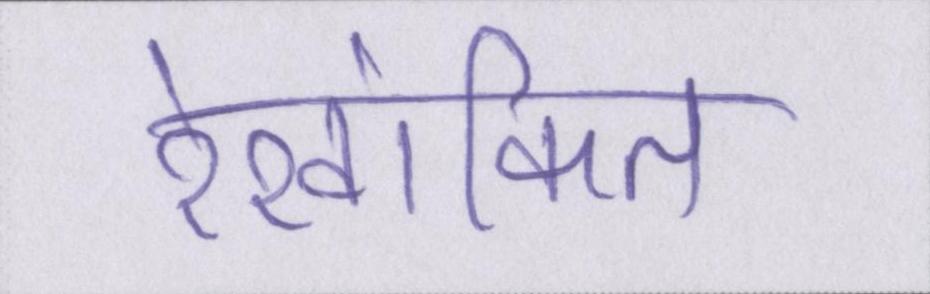 रेखांकित